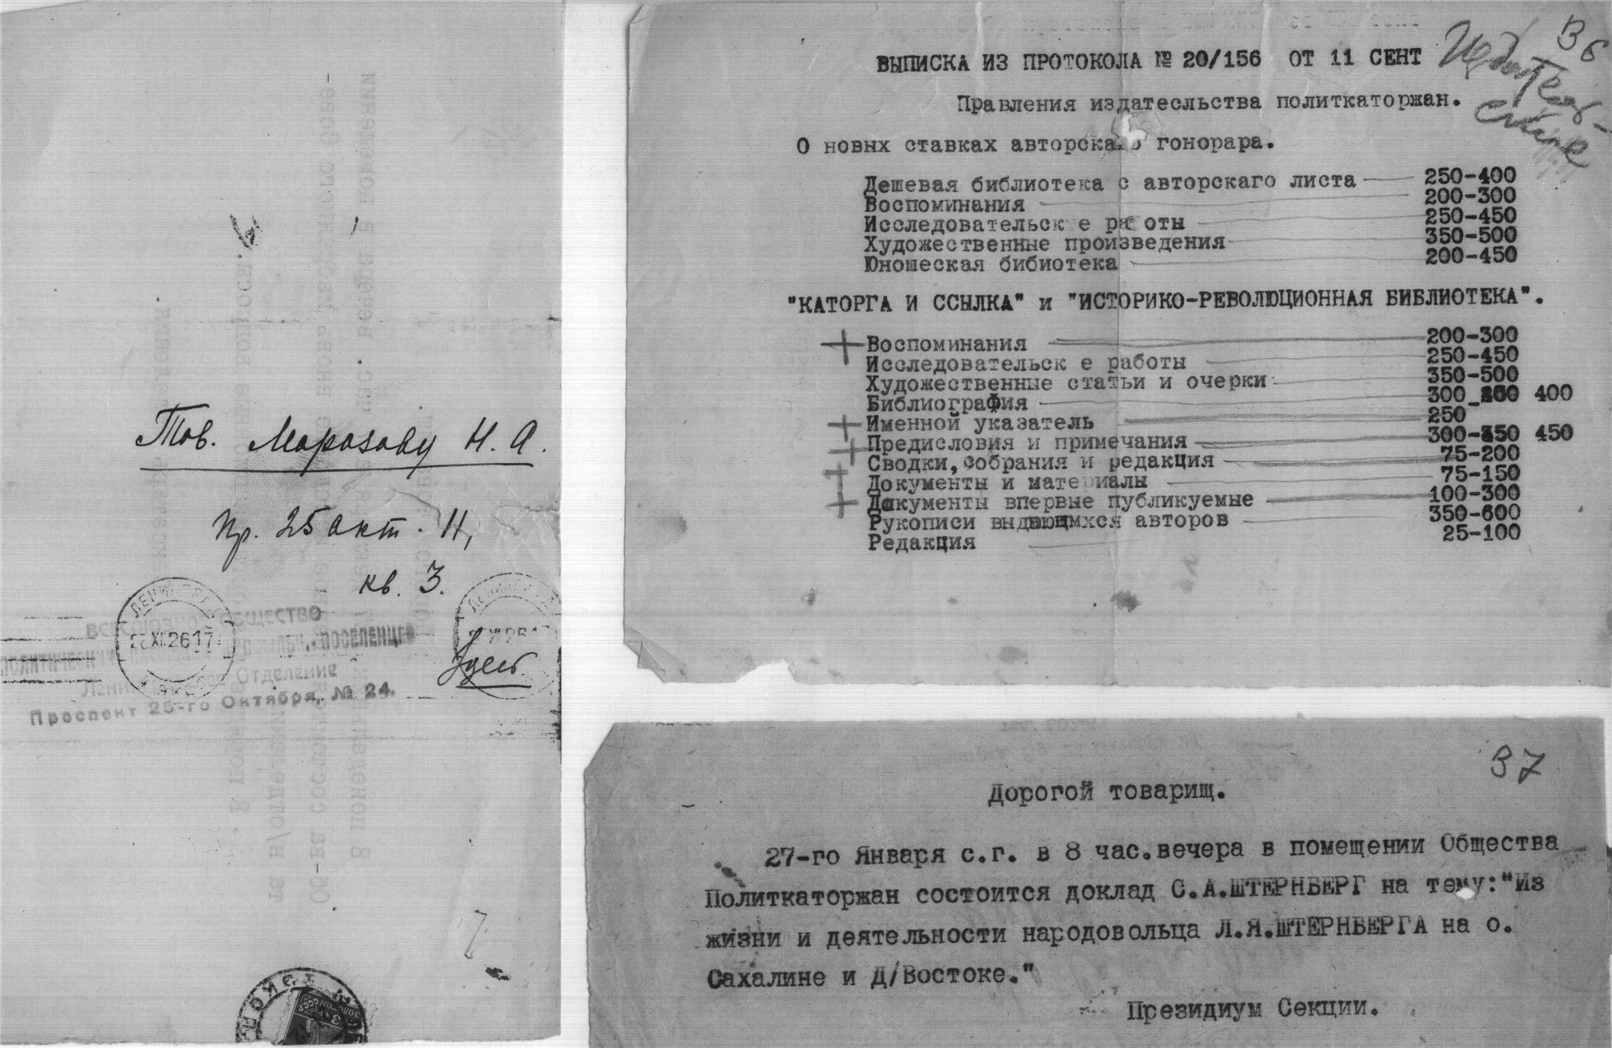 Тов. Морозову Н. А.
пр. 25 окт. 11,
кв. 3.
Здесь
ОБЩЕСТВО
Отделение
Проспект 25-го Октября, № 24.
36
ВЫПИСКА ИЗ ПРОТОКОЛА № 20/156 ОТ 11 СЕНТ
Правления издатесльства политкаторжан.
О новых ставках авторскаго гонорара.
Дешевая библиотека с авторскаго листа 250-400
Воспоминания 200-300
Исследовательск е работы 250-450
Художественные произведения 350-500
Юношеская бибиотека 200-450
"КАТОРГА И ССЫЛКА" и "ИСТОРИКО-РЕВОЛЮЦИОННАЯ БИБЛИОТЕКА".
+ Воспоминания 200-300
Исследовательск е работы 250-450
Художественные статьи и очерки 350-500
Библиография 300- 400
+ Именной указатель 250
+ Предисловия и примечания 300-350 450
+ Сводки, собрания и редакция 75-200
Документы и материалы 75-150
+ Документы впервые публикуемые 100-300
Рукописи выдающихся авторов 350-600
Редакция 25-100
37
Дорогой товарищ.
27-го Января с.г. в 8 час.вечера в помещении Общества
Политкаторжан состоится доклад С.А.ШТЕРНБЕРГ на тему:"Из
жизни и деятельности народовольца Л.Я.ШТЕРНБЕРГА на о.
Сахалине и Д/Востоке."
Президиум Секции.